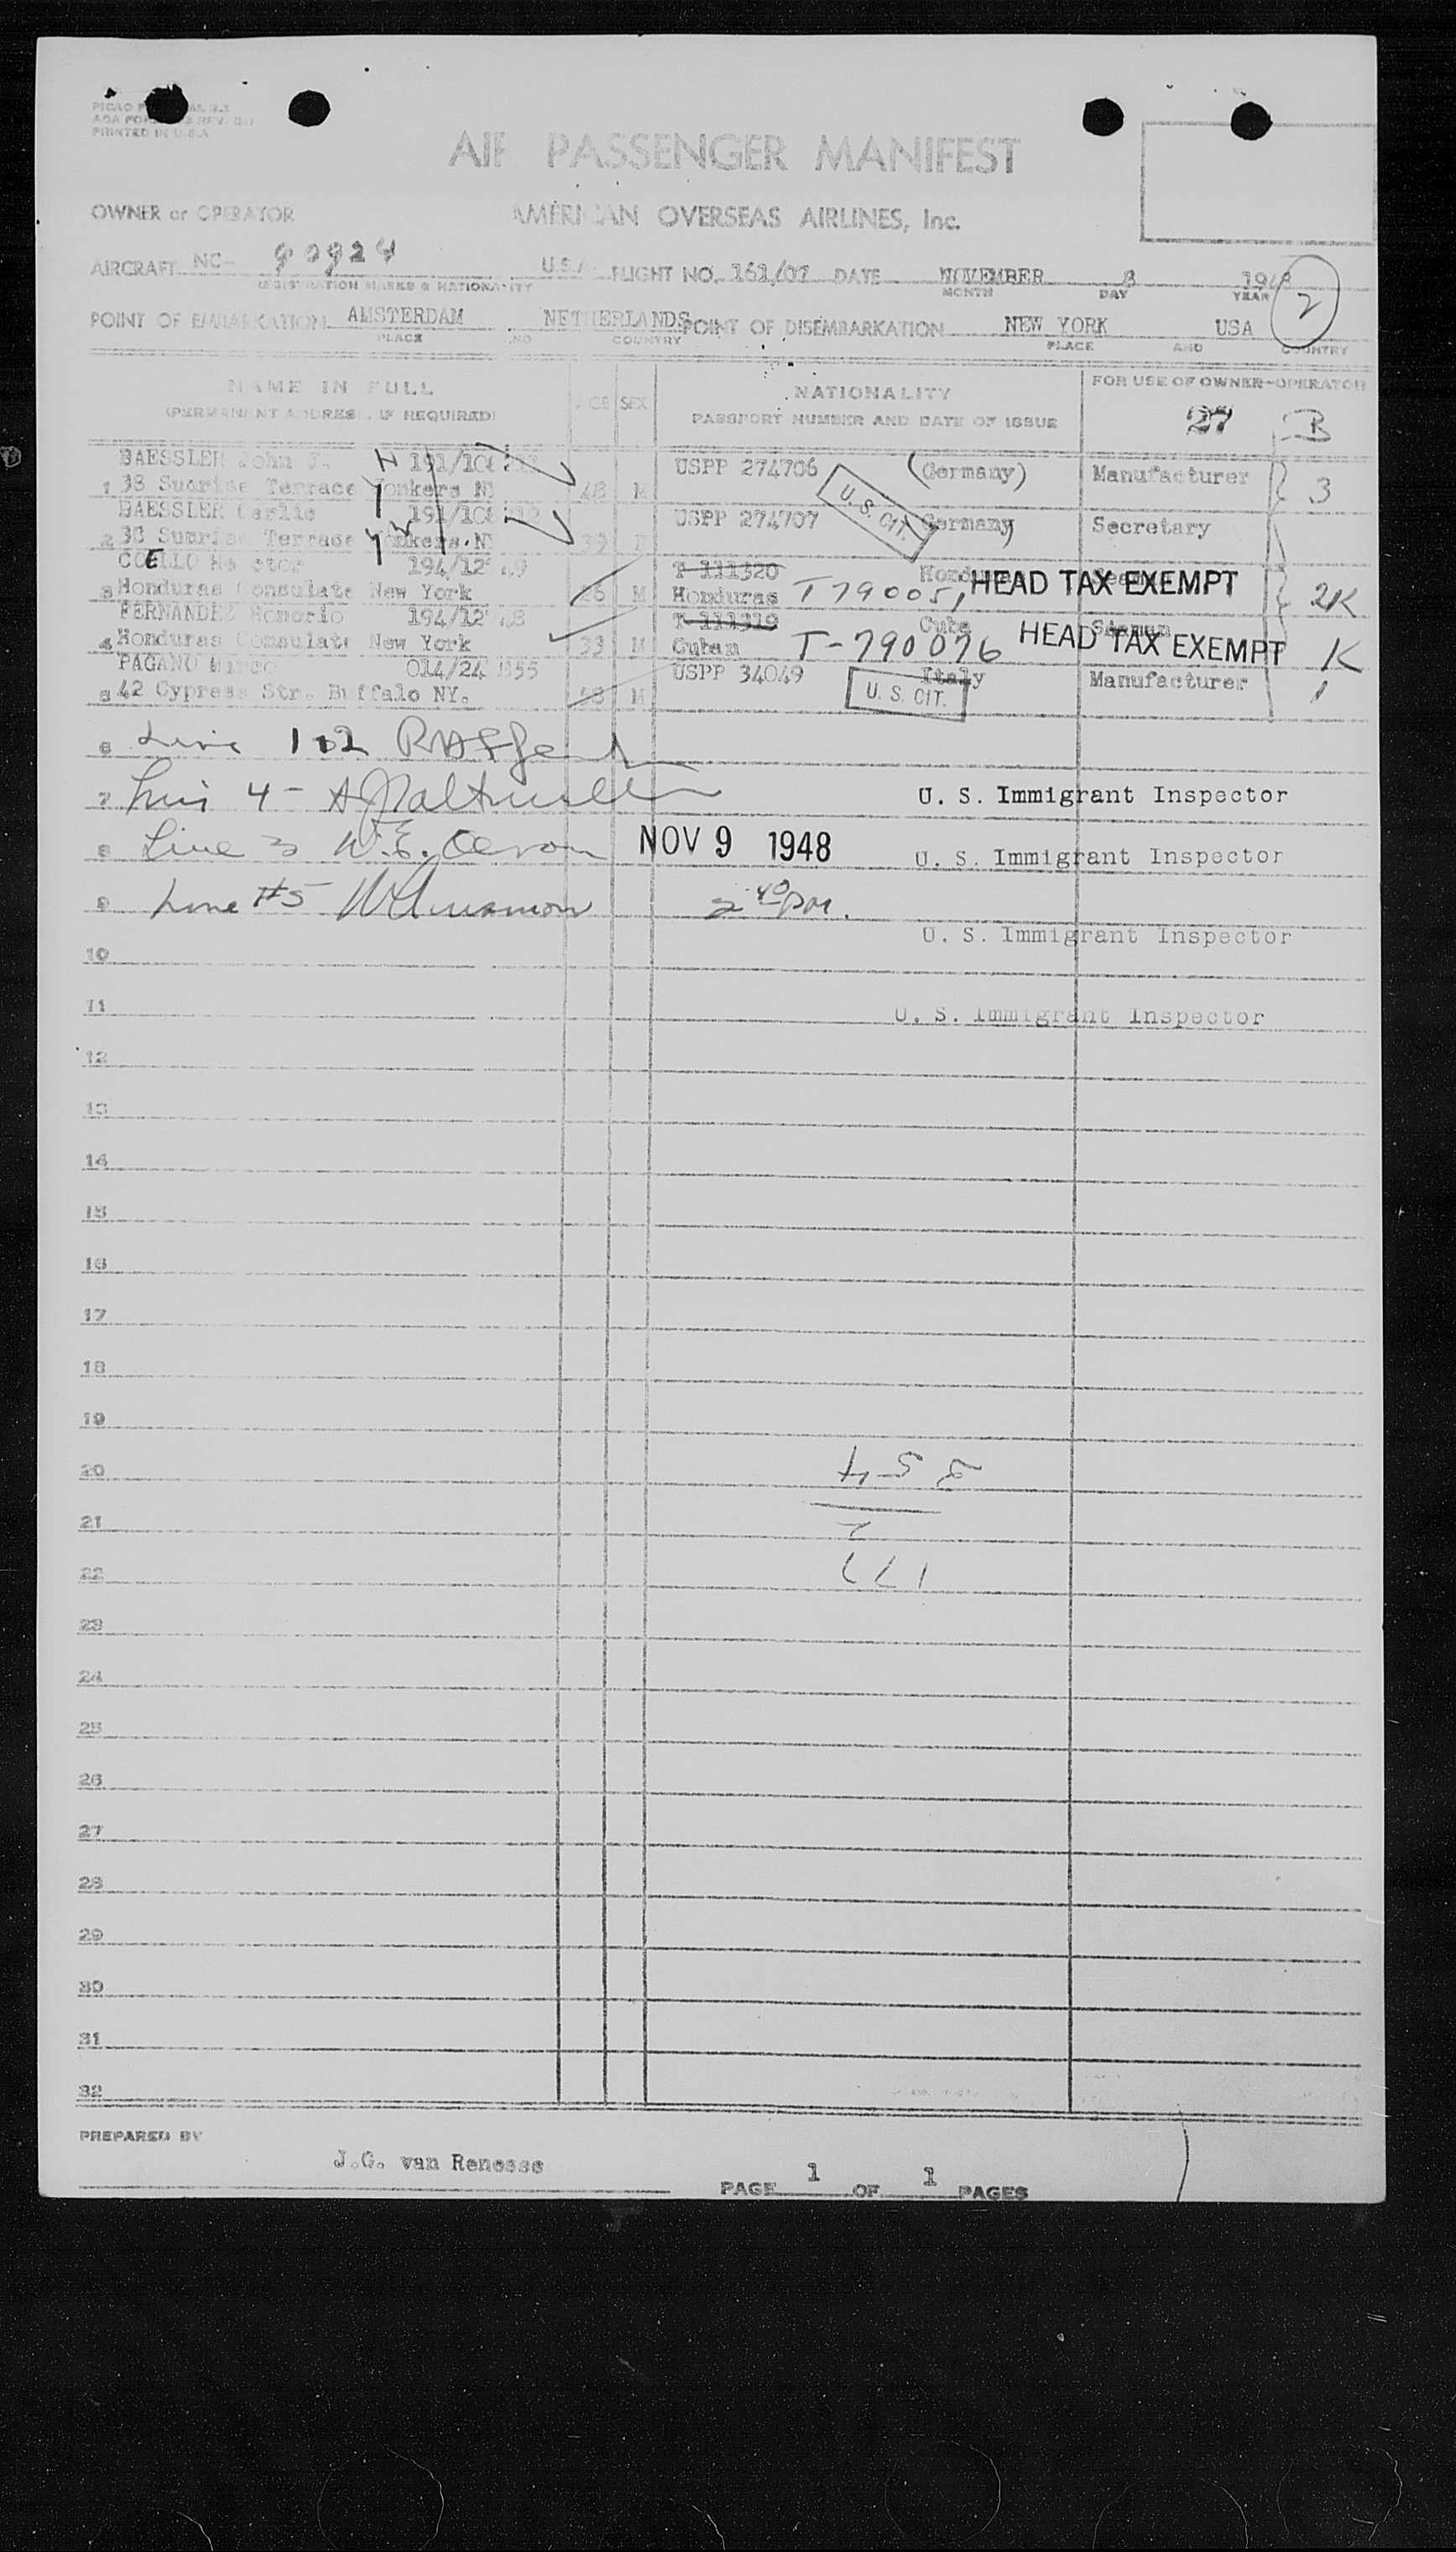 PRINTED IN U.S.A.
AIR PASSENGER MANIFEST
OWNER or OPERATOR AMERICAN OVERSEAS AIRLINES, Inc.
AIRCRAFT NC- 90924 U.S.A. FLIGHT NO. 161/07 DATE NOVEMBER 8 1948
REGISTRATION MARKS & NATIONALITY MONTH DAY YEAR
2
POINT OF EMBARKATION AMSTERDAM NETHERLANDS POINT OF DISEMBARKATION NEW YORK USA
PLACE AND COUNTRY PLACE AND COUNTRY
NAME IN FULL AGE SEX NATIONALITY FOR USE OF OWNER-OPERATOR
(PERMANENT ADDRESS, IF REQUIRED) PASSPORT NUMBER AND DATE OF ISSUE 27 B
BAESSLER John J. USPP 274706 (Germany) Manufacturer 3
1 38 Sunrise Terrace Yonkers NY 48 M U. S. CIT.
BAESSLER Carlie USPP 274707 Germany) Secretary
2 38 Sunrise Terrace Yonkers NY 39 F
COELLO Hector T 111320 HEAD TAX EXEMPT 2K
3 Honduras Consulate New York 26 M Honduras
FERNANDEZ Honorio T 111319 Cuba Seaman HEAD TAX EXEMPT K
4 Honduras Consulate New York 33 M Cuban T-790076
PAGANO 014/24 USPP 34049 Italy Manufacturer 1
5 42 Cypress Str. Buffalo NY. 48 M U. S. CIT.
6 Line 1+2
7 Line 4 - U. S. Immigrant Inspector
8 Line 3 W.E. NOV 9 1948 U. S. Immigrant Inspector
9 Line #5 2 40 pm.
U. S. Immigrant Inspector
10
11 U. S. Immigrant Inspector
12
13
14
15
16
17
18
19
20 354
21 2
22 177
23
24
25
26
27
28
29
30
31
32
PREPARED BY
J.G. van Renesse
PAGE 1 OF 1 PAGES